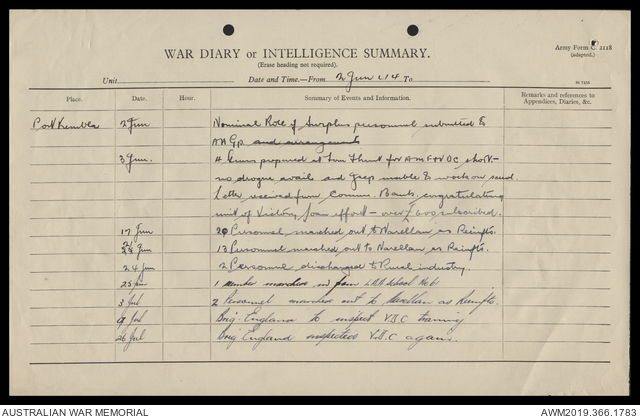 Army Form C. 2118
(adapted.)
WAR DIARY or INTELLIGENCE SUMMARY.
(Erase heading not required).
Unit Date and Time.—From 2 Jun 44 To
Place. Date. Hour. Summary of Events and Information. Remarks and references to Appendices, Diaries, &c.
Port Kembla 2 Jun Nominal Role of Surplus personnel submitted to
AA Gp and arrangements
3 Jun. 4 Guns prepared at for shoot—
no drogue avail and Gp unable to work on
Letter received from Comm. Bank congratulating
unit of Victory Loan effort— over subscribed.
17 Jun 20 Personnel marched out to Narellan as Reinfts.
Jun 12 Personnel marched out to Narellan as Reinfts.
24 Jun 2 Personnel discharged to Rural industry.
25 Jun 1 Member marches in from School No 61
3 Jul 2 Personnel marched out to Narellan as Reinfts.
Jul Brig. England to inspect V.D.C training
26 Jul Brig England inspected V.D.C again.
AUSTRALIAN WAR MEMORIAL
AWM2019.366.1783